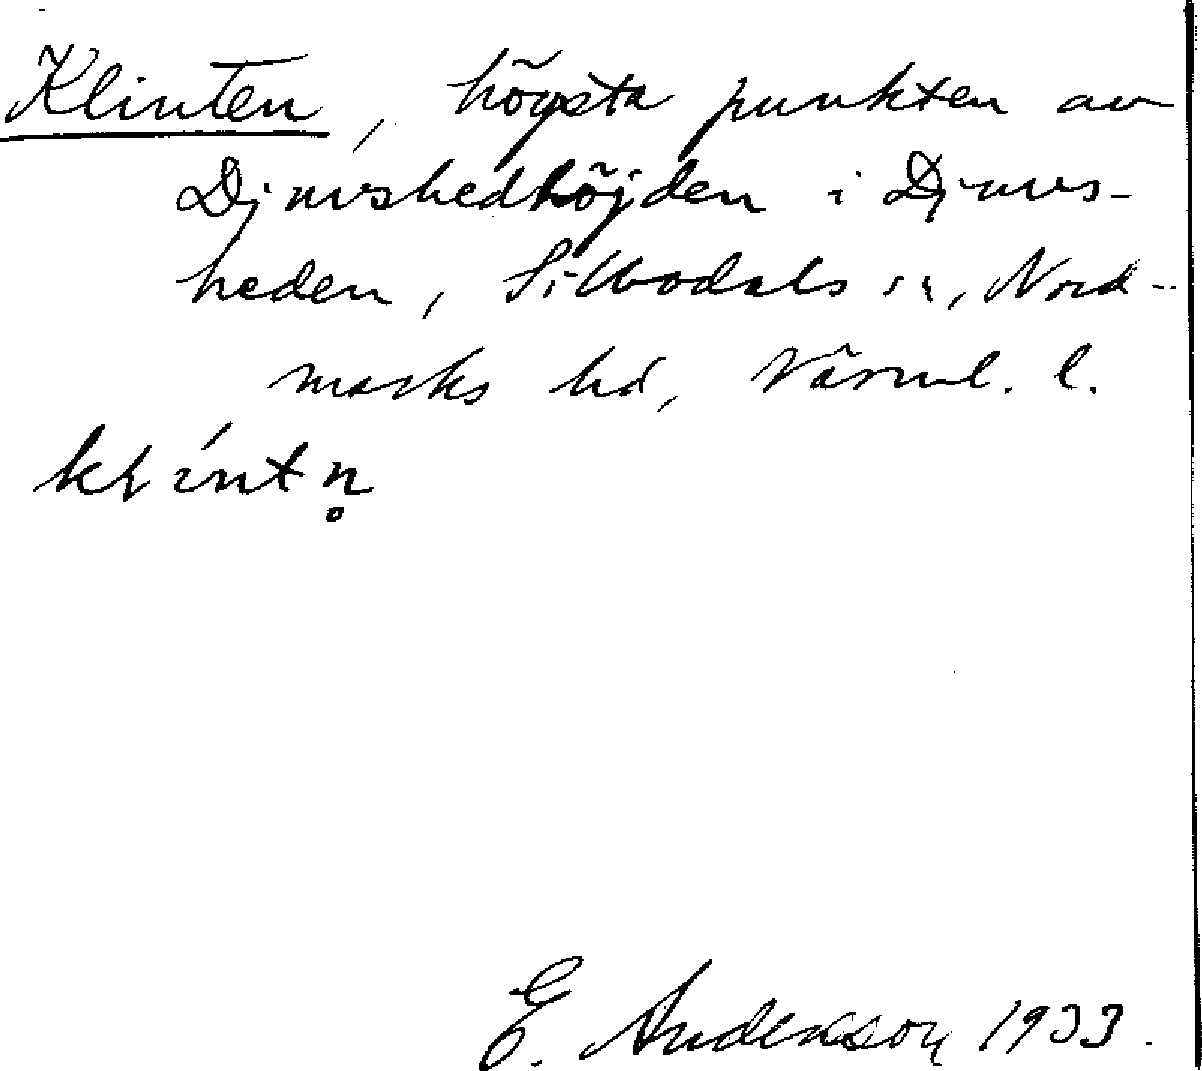 Klinten, högsta punkten av
Djuvshedhöjden i Djuvs-
heden, Silbodals sn, Nord-
marks hd, Värml. l.
klíntn̥
E. Anderson 1933.